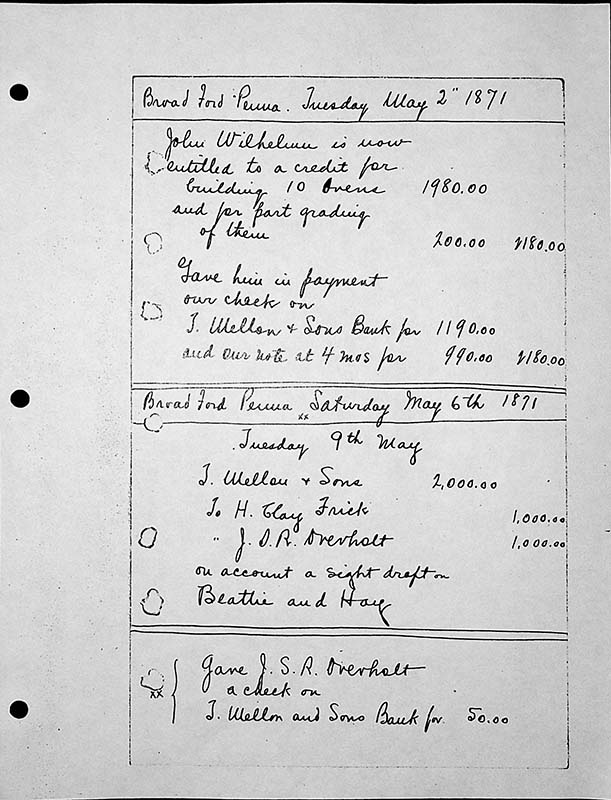 Broad Ford Penna. Tuesday May 2" 1871
John Wilhelm is now
entitled to a credit for
building 10 Ovens 1980.00
and for part grading
of them 200.00 2180.00
Gave him in payment
our check on
T. Mellon & Sons Bank for 1190.00
and our note at 4 mos for 990.00 2180.00
Broad Ford Penna Saturday May 6th 1871
xx
Tuesday 9th May
T. Mellon & Sons 2,000.00
To H. Clay Frick 1,000.00
" J. S. R. Overholt 1,000.00
on account a sight draft on
Beattie and Hay
Gave J. S. R. Overholt
a check on
xx
T. Mellon and Sons Bank for 50.00